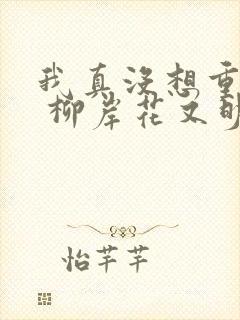 我真没想重
柳岸花又明
怡芊芊